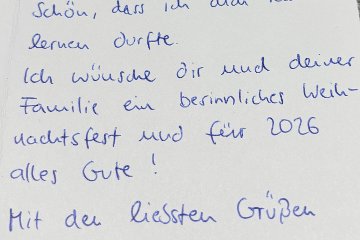 Schön, dass ich dich
lernen durfte.
Ich wünsche dir und deiner
Familie ein besinnliches Weih-
nachtsfest und fürs 2026
alles Gute!
Mit den liebsten Grüßen